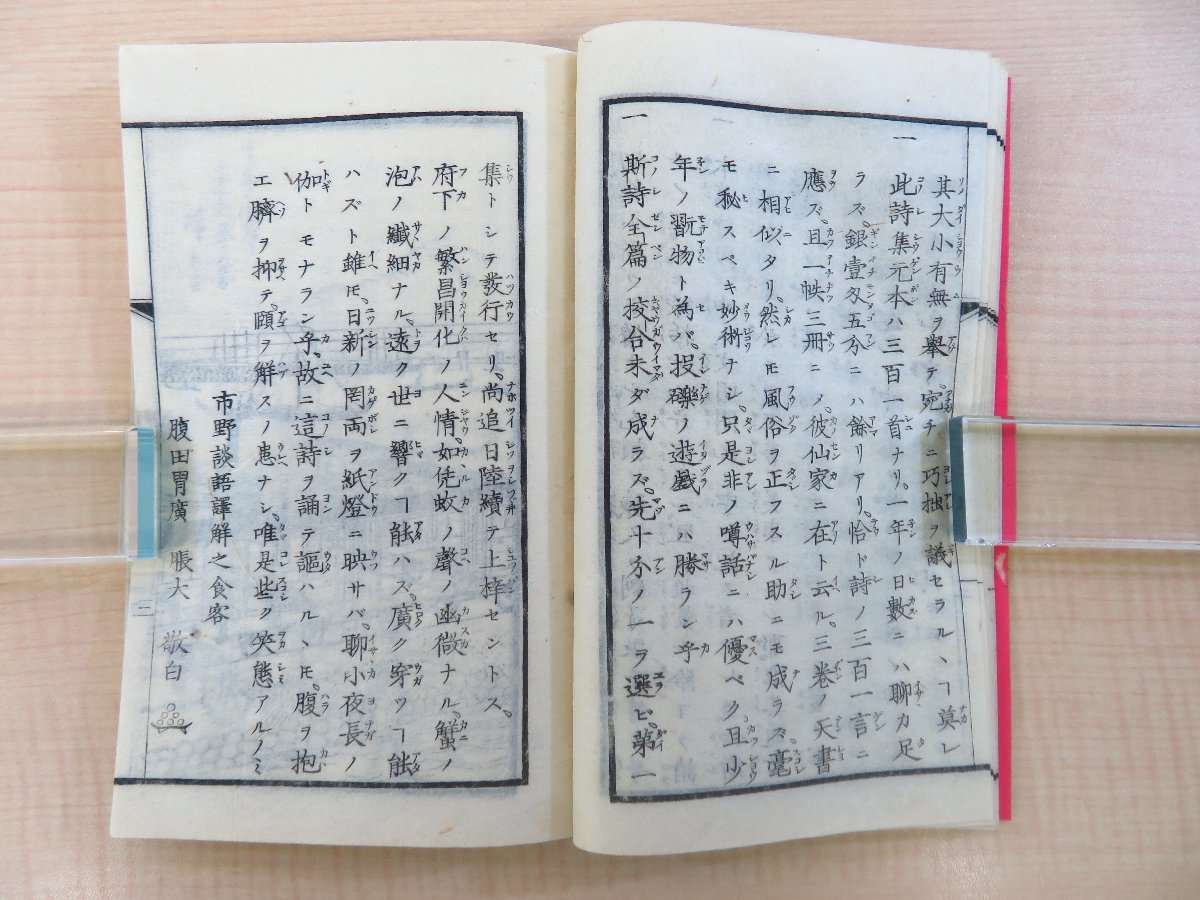 其大小有無ヲ擧テ、宛チニ巧拙ヲ議セラルヽヿ莫レ
一
此詩集元本ハ三百一首ナリ、一年ノ日數ニハ聊カ足
ラズ、銀壹匁五分ニハ餘リアリ、恰ド詩ノ三百一言ニ
應ズ、且一帙三冊ニメ、彼仙家ニ在ト云ル、三卷ノ天書
ニ相似タリ、然レモ風俗ヲ正フスル助ニモ成ラズ、毫
モ秘スベキ妙術ナシ、只是非ノ噂話ニハ優ベク、且少
年ノ翫物ト為バ、投礫ノ遊戯ニハ勝ラン乎
一
斯詩全篇ノ挍合未ダ成ラズ、先十分ノ一ヲ選ビ、第一
集トシテ發行セリ、尚追日陸續テ上梓セントス、
府下ノ繁昌開化ノ人情、如凭蚊ノ聲ノ幽微ナル、蟹ノ
泡ノ纖細ナル、遠ク世ニ響クヿ能ハズ、廣ク穿ツヿ能
ハズト雖モ、日新ノ罔両ヲ紙燈ニ映サバ、聊小夜長ノ
伽トモナラン乎、故ニ這詩ヲ誦テ謳ハルヽモ、腹ヲ抱
エ臍ヲ抑テ、頤ヲ解スノ患ナシ、唯是些ク笑態アルノミ
市野談語譯解之食客
腹田胃廣 脹大 敬白
三